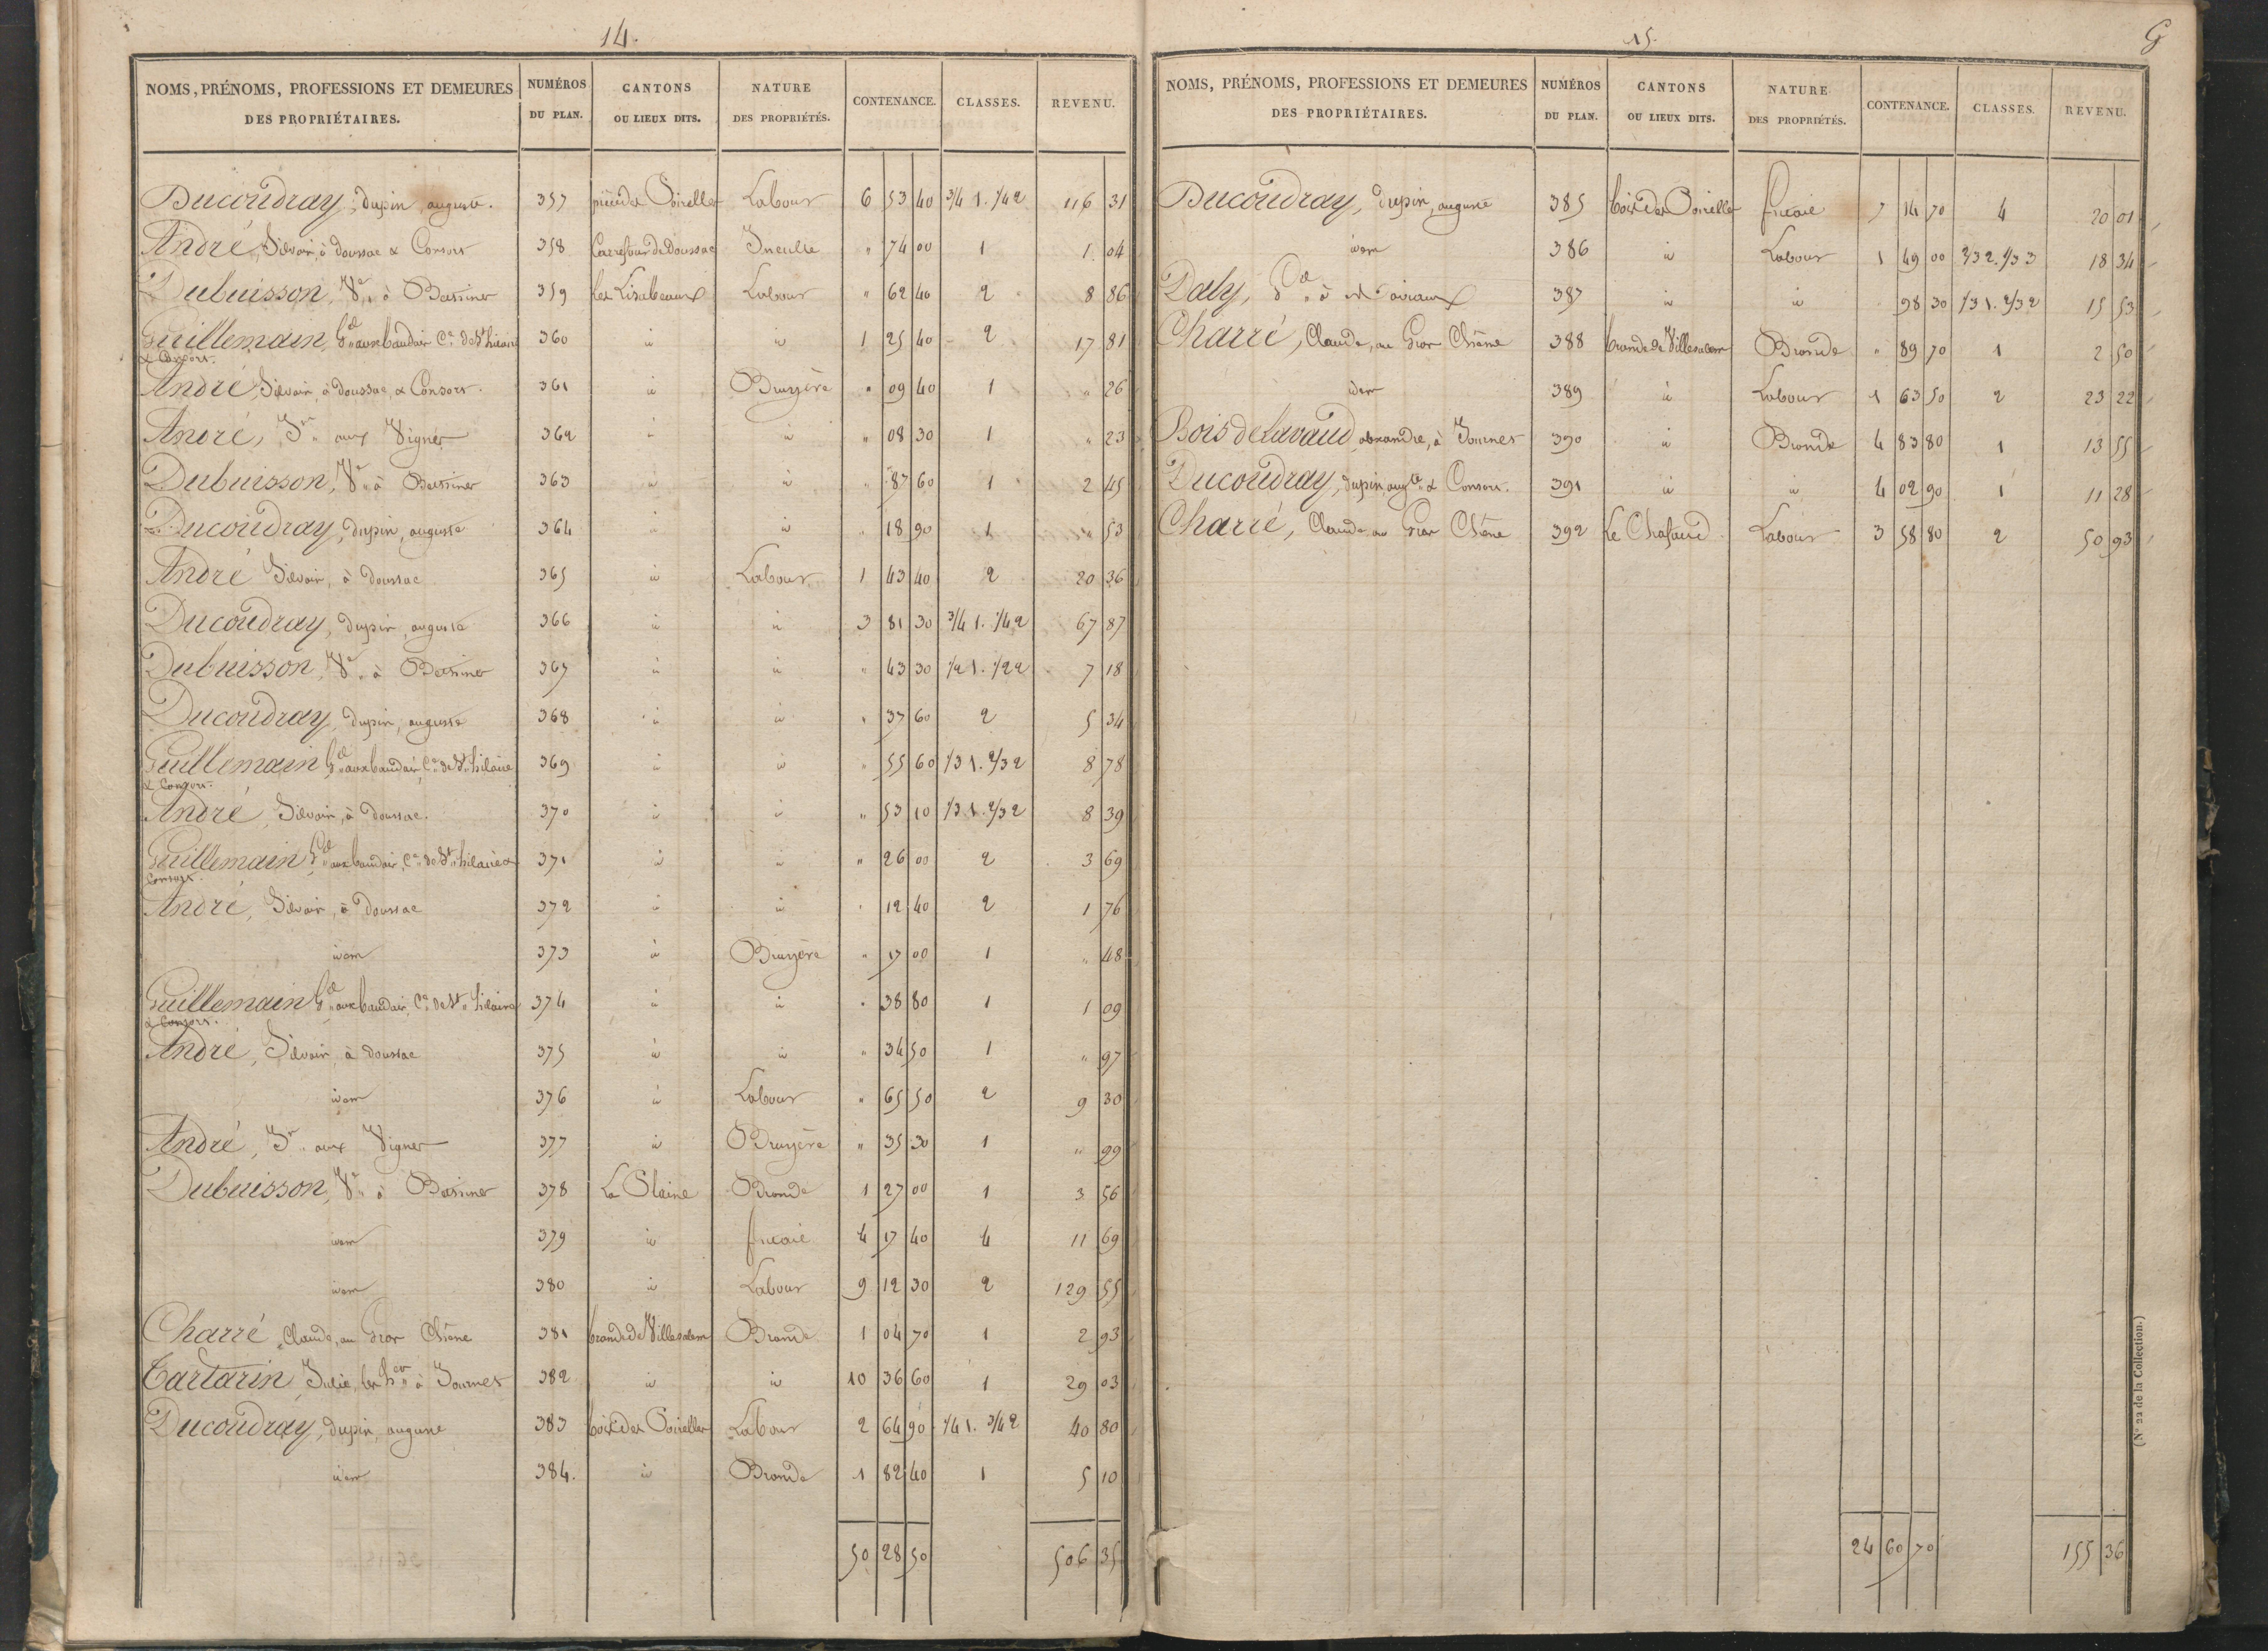 14.
NOMS, PRÉNOMS, PROFESSIONS ET DEMEURES DES PROPRIÉTAIRES. NUMÉROS DU PLAN. CANTONS OU LIEUX DITS. NATURE DES PROPRIÉTÉS. CONTENANCE. CLASSES. REVENU.
Ducoudray, dupin, auguste. 357 Labour 6 53 40 3/4 1. 1/4 2 116 31
André, Silvain, à doussac & Consors 358 Carrefour de Doussac Inculte " 74 00 1 1 04
Dubuisson, Ve, à Bessines 359 les Lisabeaux Labour " 62 40 2 8 86
Guillemain, Gd aux baudair Cne de St hilaire & Consors. 360 id id 1 25 40 2 17 81
André, Silvain, à doussac, & Consors. 361 id Bruyère " 09 40 1 " 26
André, Jn aux Vignes 362 id id " 08 30 1 " 23
Dubuisson, Ve à Bessines 363 id id " 87 60 1 2 45
Ducoudray, dupin, auguste 364 id id " 18 90 1 " 53
André Silvain, à doussac 365 id Labour 1 43 40 2 20 36
Ducoudray, dupin, auguste 366 id id 3 81 30 3/4 1. 1/4 2 67 87
Dubuisson, Ve à Bessines 367 id id " 43 30 1/2 1. 1/2 2 7 18
Ducoudray, dupin, auguste 368 id id " 37 60 2 5 34
Guillemain Gd aux baudair, Cne de St hilaire & Consors. 369 id id " 55 60 1/3 1. 2/3 2 8 78
André, Silvain, à doussac. 370 id id " 53 10 1/3 1. 2/3 2 8 39
Guillemain Gd aux baudair, Cne de St hilaire & Consors. 371 id id " 26 00 2 3 69
André, Silvain, à doussac 372 id id " 12 40 2 1 76
idem 373 id Bruyère " 17 00 1 " 48
Guillemain Gd aux baudair, Cne de St hilaire & Consors. 374 id id " 38 80 1 1 09
André, Silvain, à doussac 375 id id " 34 50 1 " 97
idem 376 id Labour " 65 50 2 9 30
André, Jn aux Vignes 377 id Bruyère " 35 30 1 " 99
Dubuisson, Ve à Bessines 378 La Plaine Brande 1 27 00 1 3 56
idem 379 id futaie 4 17 40 4 11 69
idem 380 id Labour 9 12 30 2 129 55
Charré, Claude, au Gros Chêne 381 brande de Villesalem Brande 1 04 70 1 2 93
Tartarin Julie, les hers à Journet 382 id id 10 36 60 1 29 03
Ducoudray, dupin, auguste 383 bois des Labour 2 64 90 1/4 1. 3/4 2 40 80
idem 384. id Brande 1 82 40 1 5 10
50 28 50 506 35
15.
NOMS, PRÉNOMS, PROFESSIONS ET DEMEURES DES PROPRIÉTAIRES. NUMÉROS DU PLAN. CANTONS OU LIEUX DITS. NATURE DES PROPRIÉTÉS. CONTENANCE. CLASSES. REVENU.
Ducoudray, dupin, auguste 385 bois des futaie 7 14 70 4 20 01
idem 386 id Labour 1 49 00 2/3 2. 1/3 3 18 34
Daly, à 387 id id 98 30 1/3 1. 2/3 2 15 53
Charré, Claude, au Gros Chêne 388 brande de Villesalem Brande " 89 70 1 2 50
idem 389 id Labour 1 63 50 2 23 22
Bois de Lavaud, alexandre, à Journet 390 id Brande 4 83 80 1 13 55
Ducoudray, dupin, augte & Consors. 391 id id 4 02 90 1 11 28
Charré, Claude, au Gros Chêne 392 Le Chafaud Labour 3 58 80 2 50 93
24 60 70 155 36
(N° 22 de la Collection.)